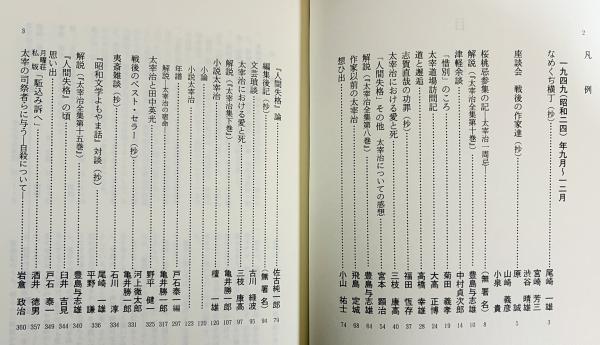 2
凡例
一九四九(昭和二四)年九月~一二月
なめくぢ横丁(抄)……尾崎一雄 3
座談会 戦後の作家達(抄)……宮崎芳三
渋谷晴雄
原誠
山崎義彦
小泉貴 5
桜桃忌参集の記―太宰治一周忌……(無署名) 8
解説(『太宰治全集第十巻』)……豊島与志雄 10
津軽余談……中村貞次郎 14
「惜別」のころ……菊田義孝 19
太宰道場訪問記……大高正博 24
道と邂逅……高橋幸雄 28
志賀直哉の功罪(抄)……福田恆存 37
太宰治における愛と死……三枝康高 40
『人間失格』その他 太宰治についての感想……宮本顕治 54
解説(『太宰治全集第八巻』)……豊島与志雄 64
作家以前の太宰治……飛島定城 68
想ひ出……小山祐士 74
3
『人間失格』論……佐古純一郎 79
編集後記(抄)……(無署名) 94
文芸瑣談……古川緑波 95
太宰治における愛と死……三枝康高 97
解説(『太宰治集下巻』)……亀井勝一郎 107
小説太宰治……檀一雄 120
小論……120
小説太宰治……123
年譜……戸石泰一編 297
解説・太宰治の宿命……亀井勝一郎
太宰治と田中英光……野平健一 317
戦後のベスト・セラー(抄)……河上徹太郎 325
夷斎雑談(抄)……石川淳 334
『昭和文学よもやま話』対談(抄)……尾崎一雄
平野謙 336
解説(『太宰治全集第十五巻』)……豊島与志雄 340
『人間失格』の頃……臼井吉見 344
思い出……戸石泰一 349
月曜荘私版「駈込み訴へ」……酒井徳男 357
太宰の司祭者らに与う―自殺について……岩倉政治 360